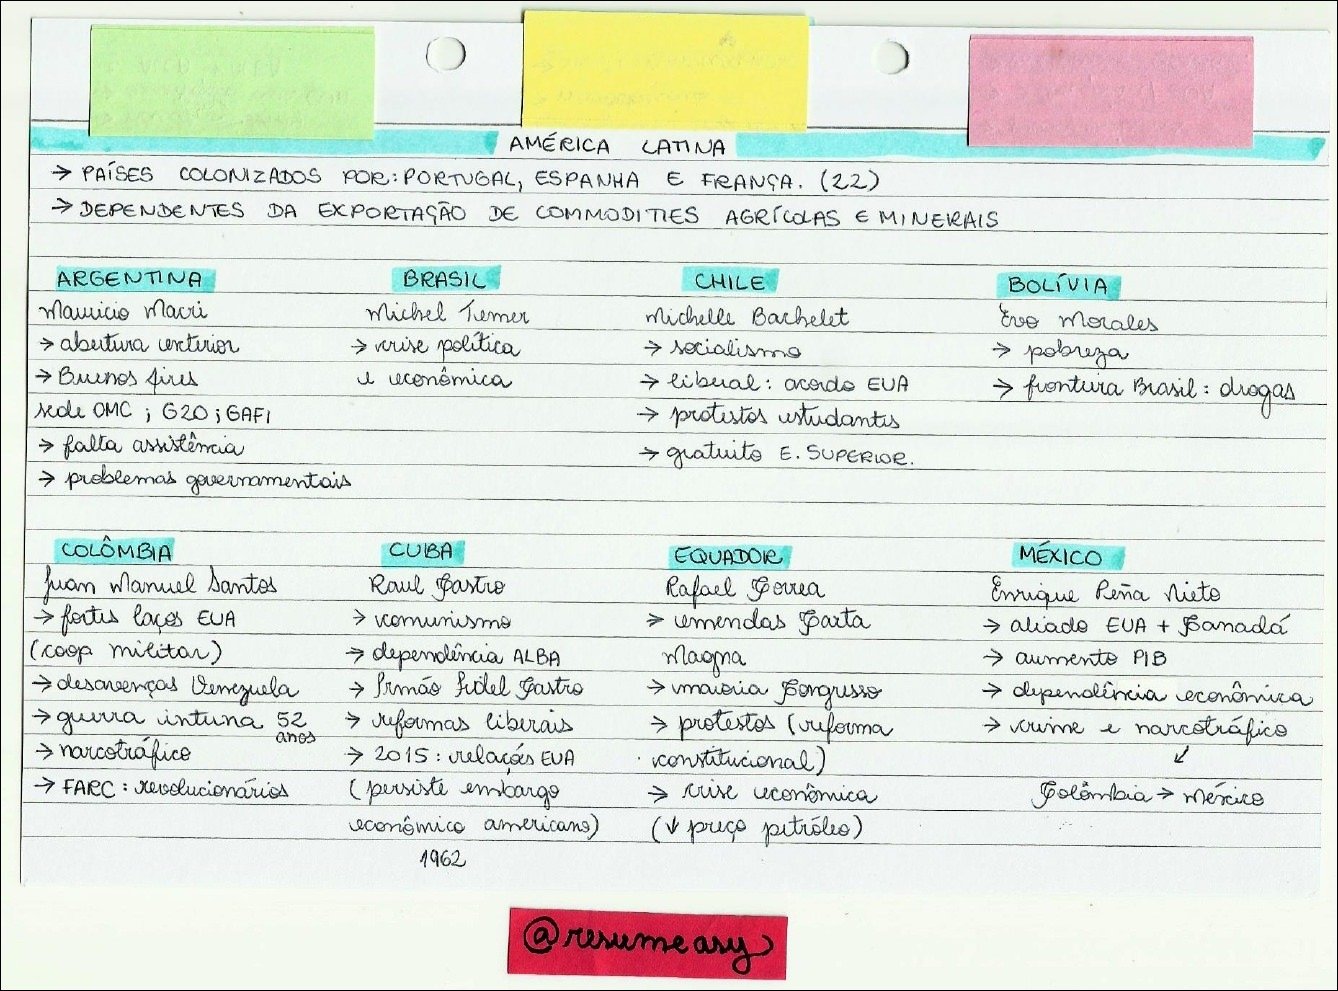 AMÉRICA LATINA
→ PAÍSES COLONIZADOS POR: PORTUGAL, ESPANHA E FRANÇA. (22)
→ DEPENDENTES DA EXPORTAÇÃO DE COMMODITIES AGRÍCOLAS E MINERAIS
ARGENTINA
Mauricio Macri
→ abertura exterior
→ Buenos Aires
sede OMC ; G20 ; GAFI
→ falta assistência
→ problemas governamentais
BRASIL
Michel Temer
→ crise política
e econômica
CHILE
Michelle Bachelet
→ socialismo
→ liberal: acordo EUA
→ protestos estudantis
→ gratuito E. SUPERIOR.
BOLÍVIA
Evo Morales
→ pobreza
→ fronteira Brasil: drogas
COLÔMBIA
Juan Manuel Santos
→ fortes laços EUA
(coop militar)
→ desavenças Venezuela
→ guerra interna 52
anos
→ narcotráfico
→ FARC: revolucionários
CUBA
Raul Castro
→ comunismo
→ dependência ALBA
→ Irmão Fidel Castro
→ reformas liberais
→ 2015: relações EUA
(persiste embargo
econômico americano)
1962
EQUADOR
Rafael Correa
→ emendas Carta
Magna
→ maioria Congresso
→ protestos (reforma
constitucional)
→ crise econômica
(↓ preço petróleo)
MÉXICO
Enrique Peña Nieto
→ aliado EUA + Canadá
→ aumento PIB
→ dependência econômica
→ crime e narcotráfico
↙
Colômbia → México
@resumeasy